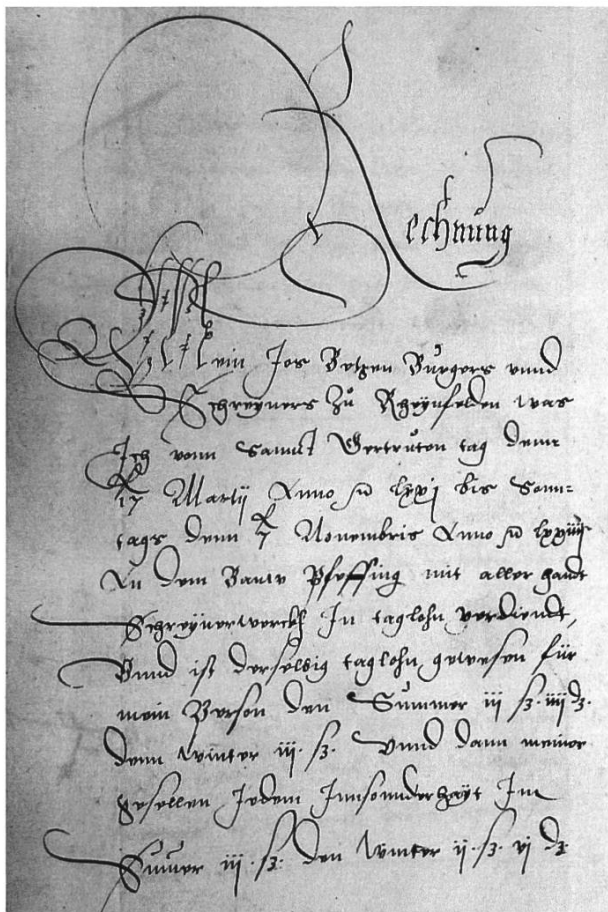 Rechnung
Mein Jos Betzen Burgers vnnd
Schreyners Zu Rheynfelden was
Ich vonn Sannct Gertruten tag denn
17 Martij Anno lxxj bis Sonn=
tags denn 7 Nouembris Anno lxxiiij
An dem Bauw Pfeffing mit aller handt
Schreynerwerckh In taglohn verdiendt,
Vnnd ist derselbig taglohn gewesen für
mein Person den Summer iii ß. iiij d.
denn winter iii. ß. Vnnd dann meiner
gesellen Jedem Innsonderhayt Im
Sumer iii. ß. den winter ij. ß. vj d.